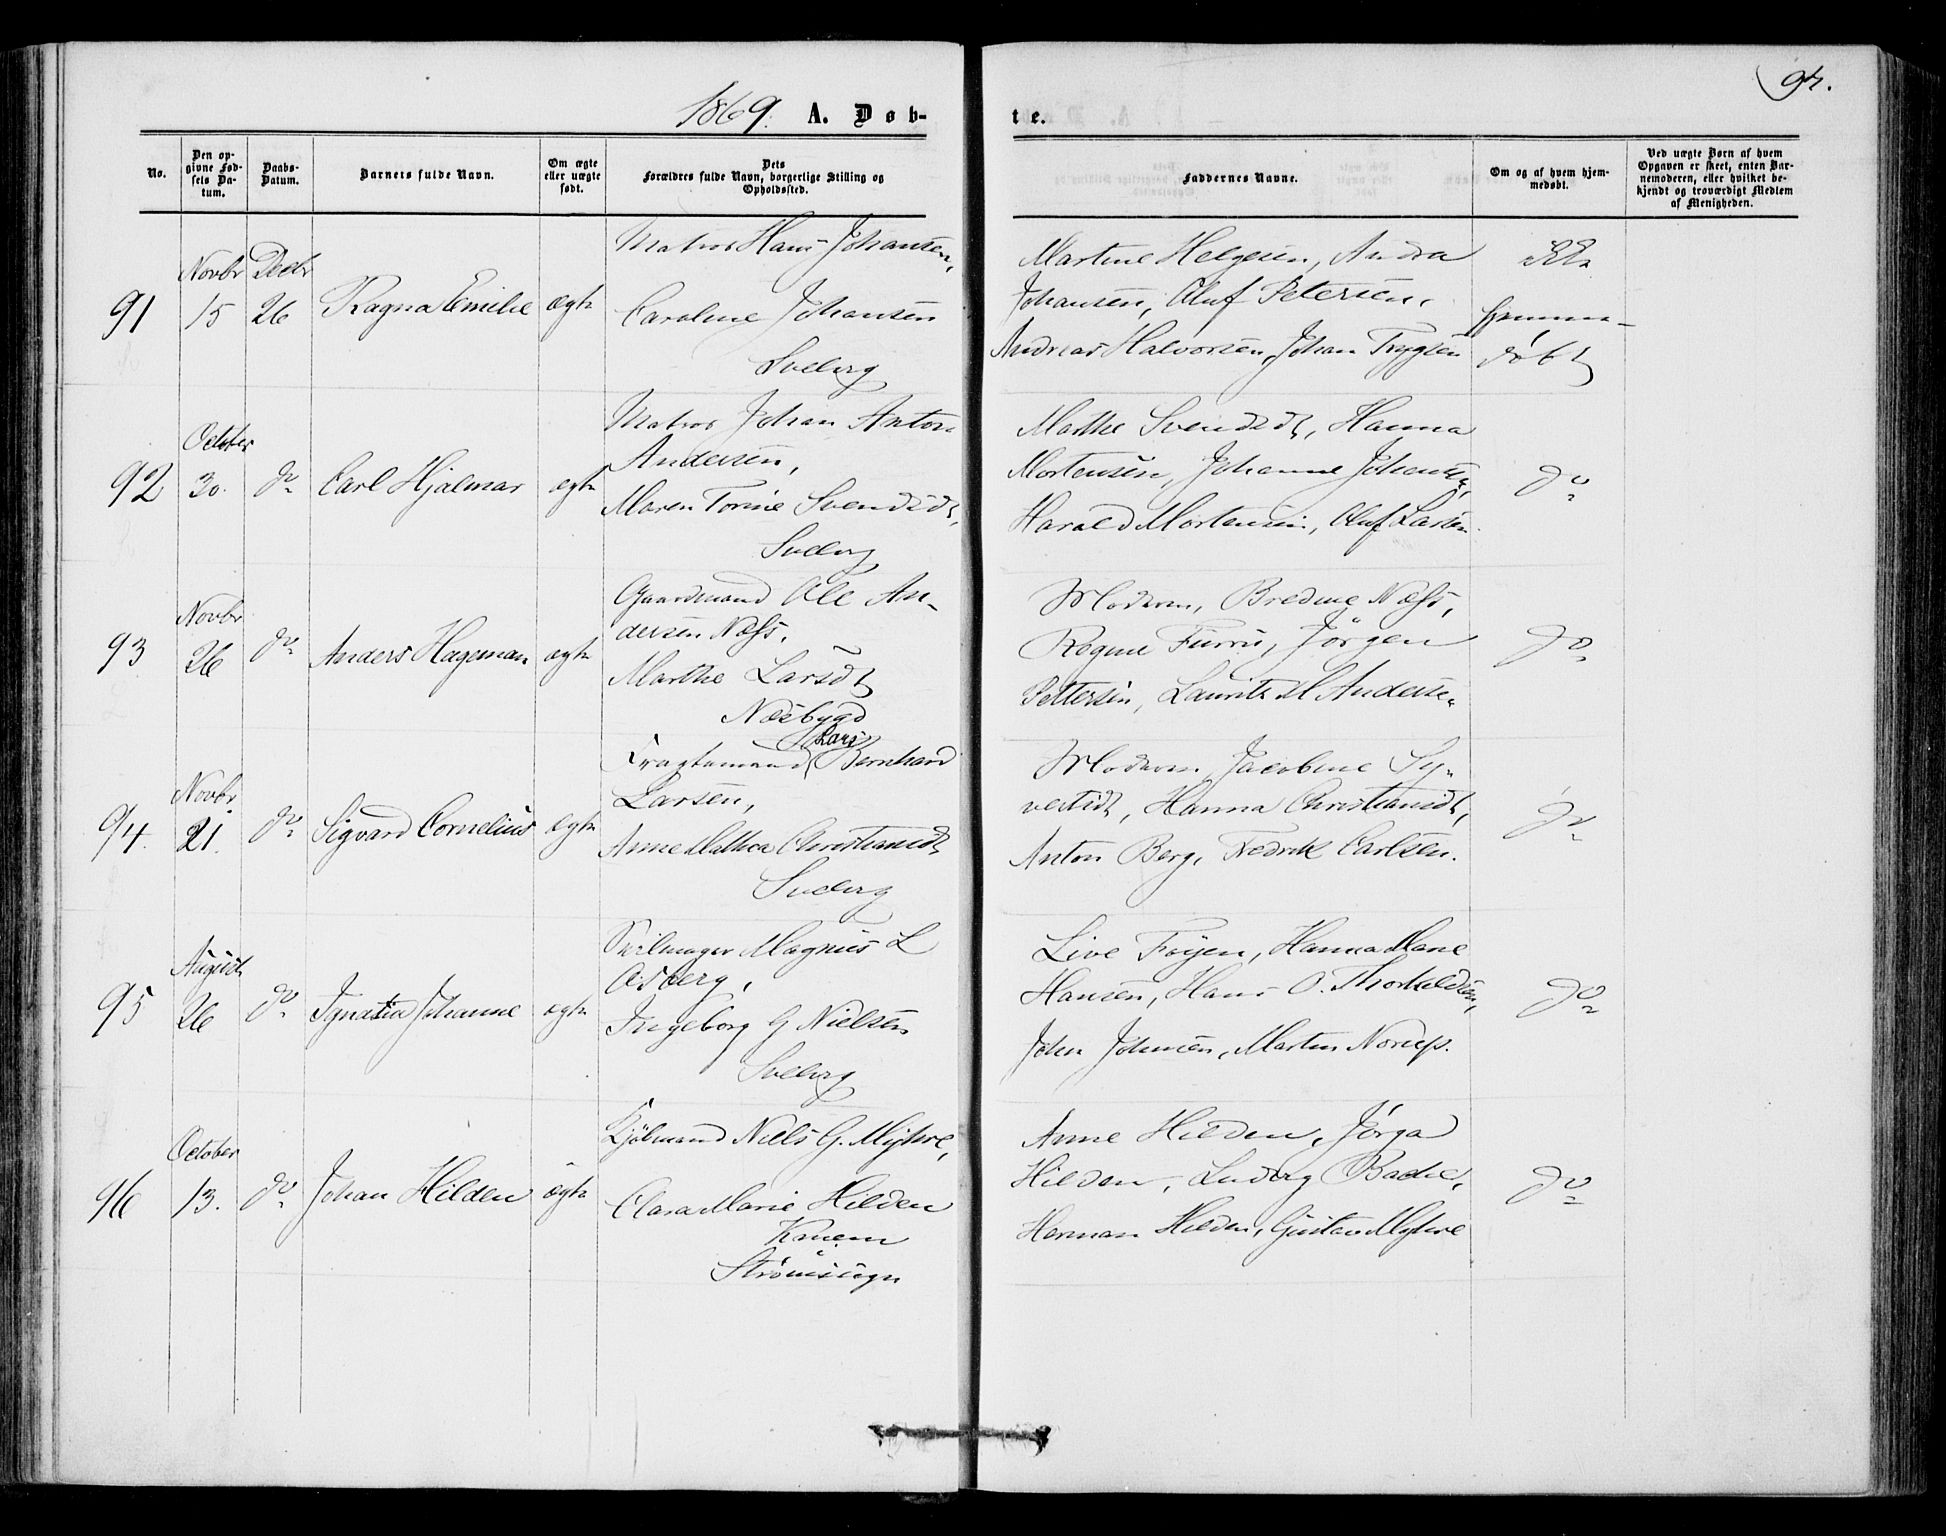 1869. A. Døb-
te.
94.
No.
Den op-
givne Fød-
sels Da-
tum.
Daabs-
Datum.
Barnets fulde Navn.
Om ægte
eller uægte
født.
Dets
Forældres fulde Navn, borgerlige Stilling og
Opholdssted.
Faddernes Navne.
Om og af hvem hjem-
medøbt.
Ved uægte Børn af hvem
Opgaven er skeet, enten Bar-
nemoderen, eller hvilket be-
kjendt og troværdigt Medlem
af Menigheden.
91
Novbr
15
Decbr
26
Ragna Emilie
ægte
Matros Hans Johansen,
Caroline Johansen
Svelvig
Martine Helgesen, Andra
Johansen, Oluf Petersen,
Andreas Halvorsen, Johan Trygsen
ikke
hjemme-
døbt
92
October
30.
do
Carl Hjalmar
ægte
Matros Johan Anton
Andersen,
Maren Torine Svendsdt,
Svelvig
Marthe Svendsdt, Hanna
Mortensen, Johanne Johans,
Harald Mortensen, Oluf Larsen.
do
93
Novbr
26
do
Anders Hageman
ægte
Gaardmand Ole An-
dersen Næss,
Marthe Larsdt
Næsbygd
Moderen, Bredine Næss,
Ragne Furru, Jörgen
Pettersen, Lauritz M Andersen
do
94.
Novbr
21.
do
Sigvard Cornelius
ægte
Lars
Fragtemand Bernhard
Larsen,
Anne Mathea Christiansdt
Svelvig
Moderen, Jacobine Sy-
vertsdt, Hanna Christiansdt,
Anton Berg, Fredrik Carlsen.
do
95
August
26
do
Ignatia Johanne
ægte
Seilmager Magnus L
Osberg,
Ingeborg G Nielsen
Svelvig
Live Föyen, Hanna Marie
Hansen, Hans O. Thorkeldsen,
John Johnsen, Martin Norup.
do
96
October
13.
do
Johan Hilden
ægte
Kjøbmand Niels G. Myhre,
Clara Marie Hilden
Knem
Strømsogn
Anne Hilden, Jørga
Hilden, Ludvig Backe,
Herman Hilden, Gustav Myhre
do